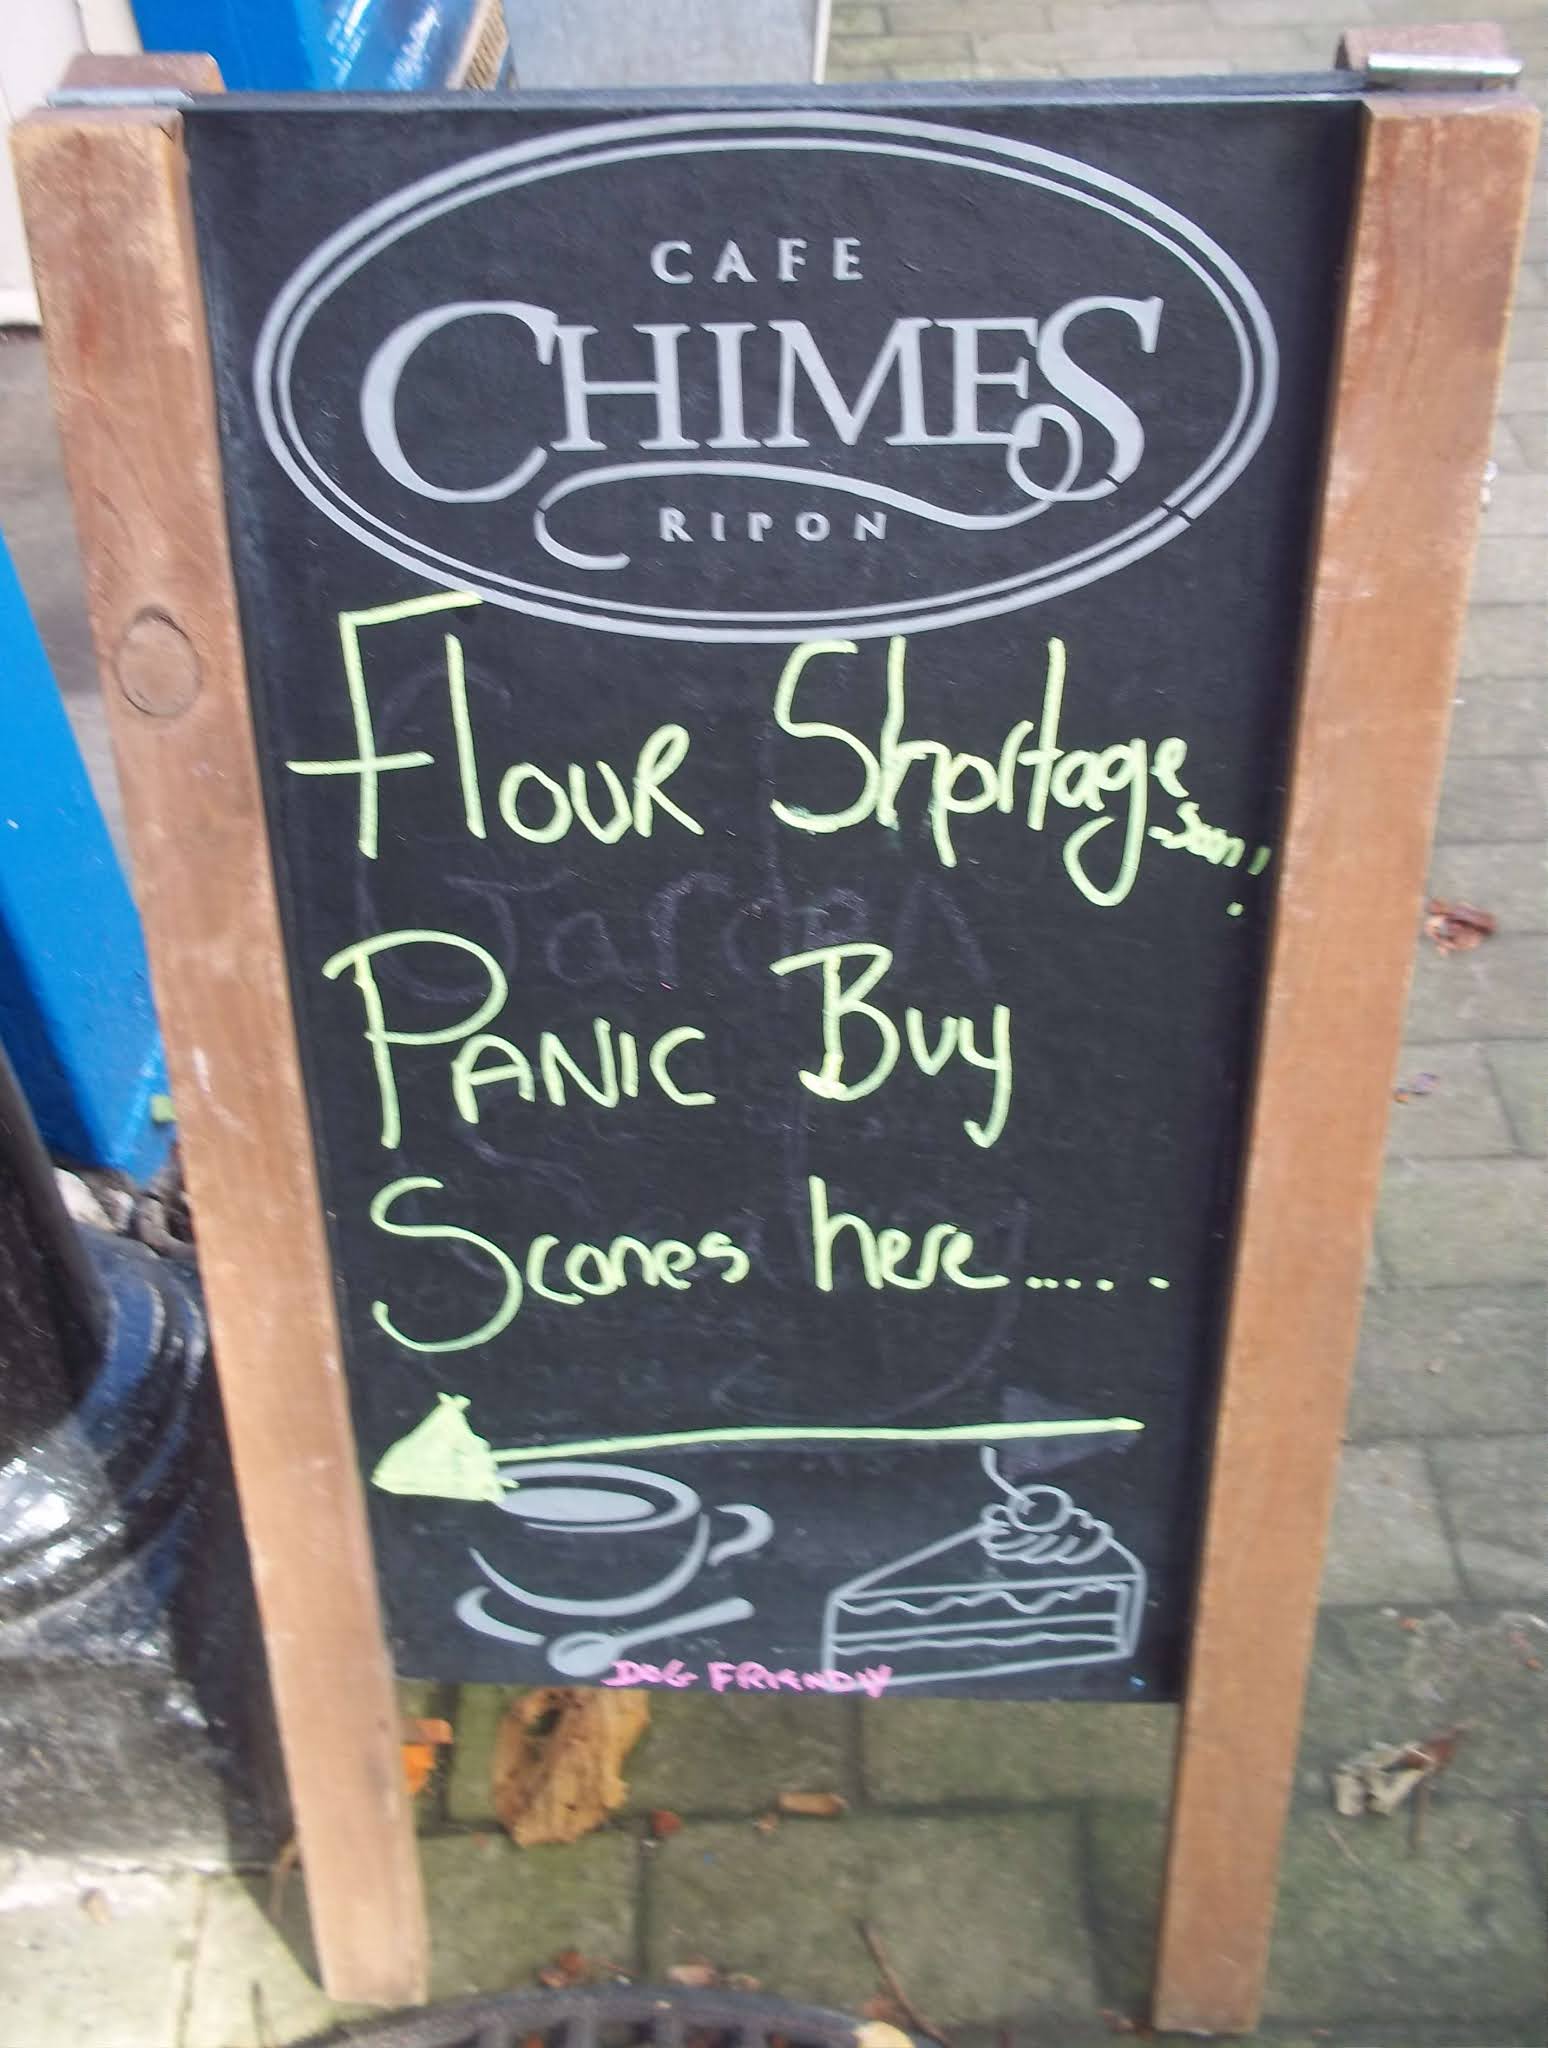 CAFE
CHIMES
RIPON
Flour Shortage
Soon!
PANIC Buy
Scones here.....
DOG FRIENDLY